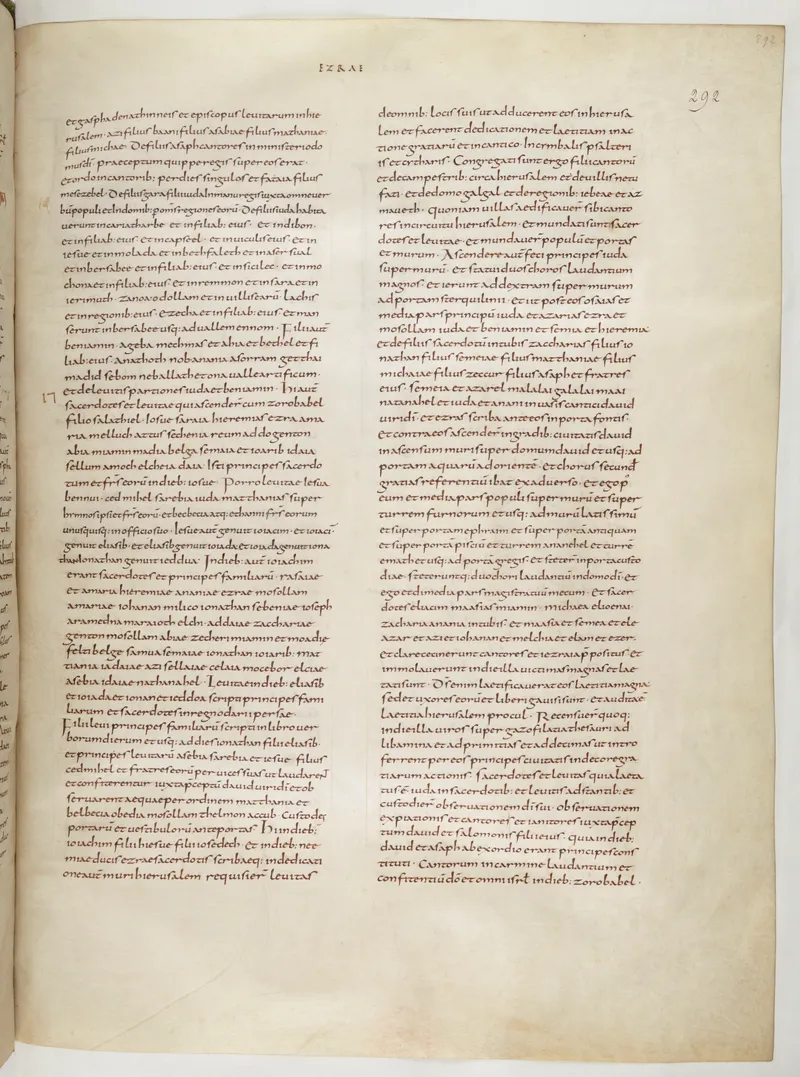 EZRAE
292
et gaspha denathinneis et episcopus leuitarum in hie
rusalem · azi filius baani filius asabiae filius mathaniae ·
filius michae · De filiis asaph cantores in ministerio do
praeceptum quippe regis super eos erat ·
et ordo in cantorib: per dies singulos et fataia filius
mesezebel · De filiis zara filii iuda in manu regis iuxta omne uer
bū populi et in domib: per oms regiones eorū · De filiis iuda habita
uerunt in cariatharbe · et in filiab: eius · et in dibon ·
et in filiab: eius · et in capseel · et in uiculis eius · et in
iesue et in molada et in bethfaleth et in asersual
et in bersabee et in filiab: eius · et in sicilec · et in mo
chona et in filiab: eius · et in remmon et in sara et in
ierimuth · zanoa odollam et in uillis earū · Lachis
et in regionib: eius · ezecha et in filiab: eius · et man
serunt in bersabee usq: ad uallem ennom · Filii aut̄
beniamin · a geba mechmas et ahia et bethel et fi
liab: eius · Anathoth nob anania asor rama getthai
madid sebom neballath et ona ualle artificum ·
17 et de leuitis partiones iuda et beniamin · Hi aut̄
sacerdotes et leuitae qui ascender̄ cum zorobabel
filio salathiel · Iosue saraia hieremias ezra ama
ria melluch attus sechenia reum
abia miamin madia belga semaia et ioarib idaia
sellum amoch elcheia idaia · Isti principes sacerdo
tum et fr̄s eorū in dieb: iosue · Porro leuitae iesua
bennui · cedmihel sarebia iuda matthanias super
et becbecia atq: et hanni fr̄s eorum
unusquisq: in officio suo · Iesue aut̄ genuit ioiacim · et ioiaci
genuit eliasib · et eliasib genuit ioiada et ioiada genuit iona
than ionathan genuit ieddua · In dieb: aut̄ ioiachim
erant sacerdotes et principes familiarū · rasaiae
et amaria hieremiae anania ezrae mosollam
amariae iohanan milico ionathan sebeniae ioseph
aram edna maraioth elchi · addaiae zacchariae
genton mosollam abiae zecheri miamin et moadie
felti belgae samua semaiae ionathan ioiarib · mat
tiania iadaiae azi sellaiae celaia mocebor elciae
asebia idaiae nathanahel · Leuitae in dieb: eliasib
et ioiada et ionan et ieddoa scripti principes fami
liarum et sacerdotes in regno darii persae ·
Filii leui principes familiarū scripti in libro uer
borum dierum et usq: ad dies ionathan filii eliasib ·
et principes leuitarū asebia sarebia et iesue filius
cedmihel et fratres eorū per uices suas ut laudarent
et confiterentur iuxta p̄ceptū dauid uiri dī et ob
seruarent aeque per ordinem matthania et
belbecia obedia mosollam thelmon accub · Custodes
portarū et uestibulorū ante portas · Hi in dieb:
ioiachim filii hiesue filii iosedech · et in dieb: nee
miae ducis et ezrae sacerdotis scribaeq: in dedicati
one aut̄ muri hierusalem requisier̄ leuitas
de omnib: locis suis ut adducerent eos in hierusa
lem et facerent dedicationem et laetitiam in ac
tione gratiarū et in cantico · In cymbalis psalteri
is et cytharis · Congregati sunt ergo filii cantorū
et de campestrib: circa hierusalem et de uillis netu
fati · et de domo galgal et de regionib: iebeae et az
maueth · quoniam uillas aedificauer̄ sibi canto
res in circuitu hierusalem · et mundati sunt sacer
dotes et leuitae · et mundauer̄ populū et portas
et murum · Ascendere aut̄ feci principes iuda
super murū · et statui duos choros laudantium
magnos · et ierunt ad dextram super murum
ad portam sterquilinii · et iit post eos osaias et
media pars principū iuda et azarias ezra et
mosollam iuda et beniamin et semeia et hieremia
et de filiis sacerdotū in tubis zaccharias filius io
nathan filius semeiae filius matthaniae filius
michaiae filius zeccur filius asaph et fratres
eius · semeia et azarel malalai galalai maai
natanahel et iuda et anani in uasis cantici dauid
uiri dī · et ezras scriba ante eos in porta fontis
et contra eos ascender̄ in gradib: ciuitatis dauid
in ascensum muri super domum dauid et usq: ad
portam aquarū ad orientē · et chorus secund̄
gratias referentiū ibat ex aduerso · et ego p̄
eum et media pars populi super murū et super
turrem furnorum et usq: ad murū latissimū
et super portam ephraim et super portā antiquam
et super portā pisciū et turrem ananehel et turrē
emath et usq: ad portā gregis · et steter̄ in porta custo
diae · steteruntq: duo chori laudantiū in domo dī · et
ego et dimedia pars magistratuū mecum · et sacer
dotes eliacim maasias miamin · michaea elioenai
zacharia anania in tubis · et maasia et semea et ele
azar et azi et iohanan et melchia et elam et ezer ·
et clare cecinerunt cantores et iezraia p̄positus · et
immolauerunt in die illa uictimas magnas et lae
tati sunt · Ds enim laetificauerat eos laetitia magna ·
sed et uxores eorū et liberi gauisi sunt · et audita ē
laetitia hierusalem procul · Recensuer̄ quoq:
in die illa uiros super gazofilatia thesauri ad
libamina et ad primitias et ad decimas ut intro
ferrent per eos principes ciuitatis in decore gra
tiarum actionis · sacerdotes et leuitas quia laeta
tus ē iuda in sacerdotib: et leuitis adstantib: et
custodier̄ obseruationem dī sui · obseruationem
expiationis et cantores et ianitores iuxta p̄cep
tum dauid et salomonis filii eius · quia in dieb:
dauid et asaph ab exordio erant principes cons
tituti · Cantorum in carmine laudantium et
confitentiū dō et omnis isrl in dieb: zorobabel ·